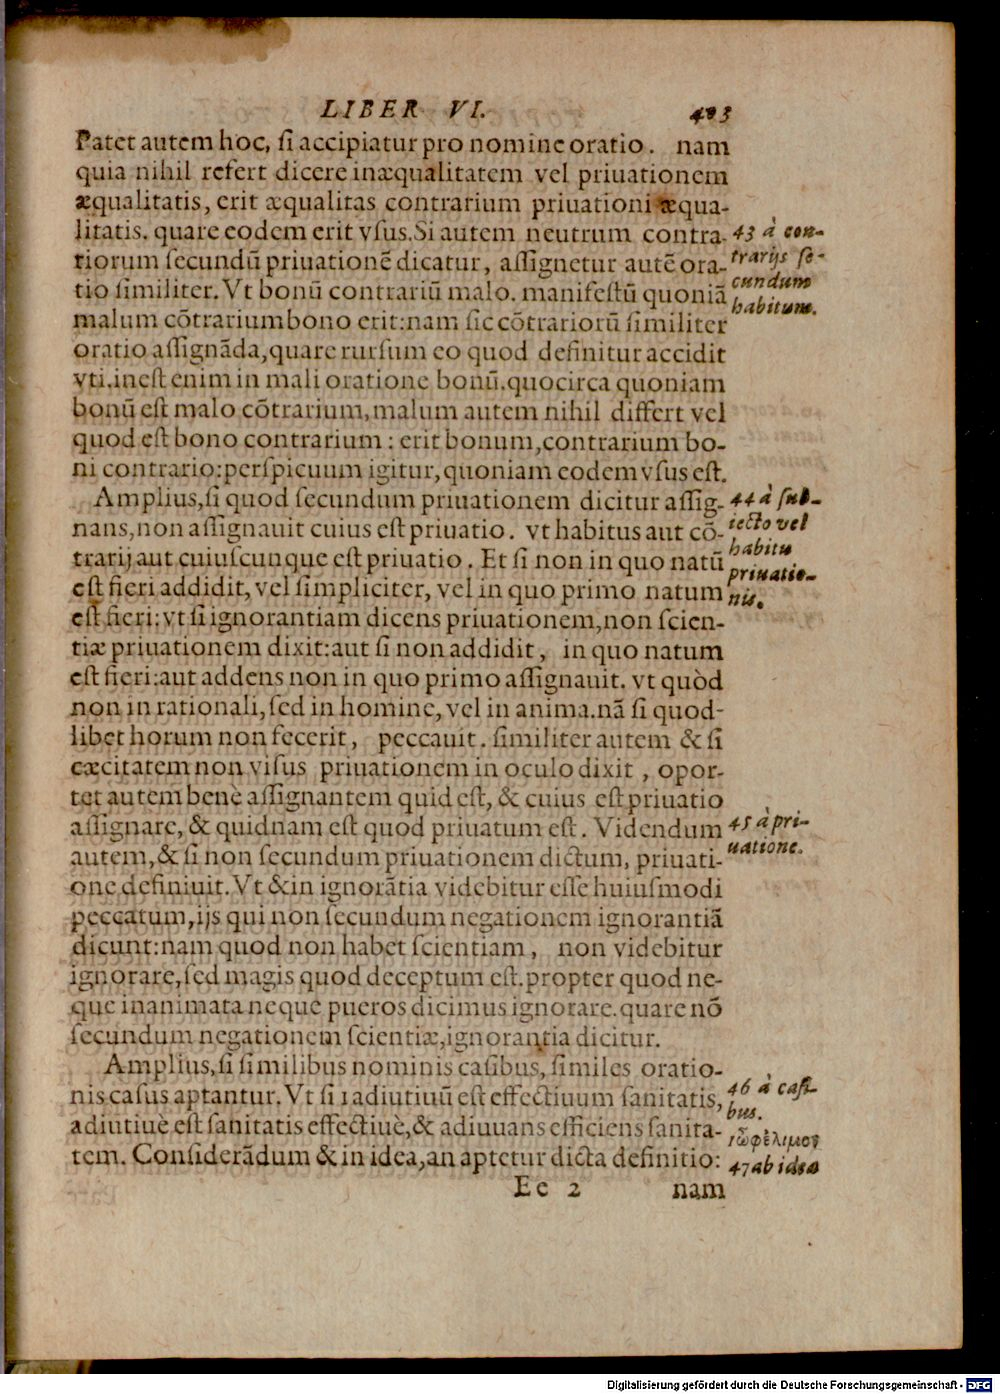 LIBER VI. 403
Patet autem hoc, ſi accipiatur pro nomine oratio. nam
quia nihil refert dicere inæqualitatem vel priuationem
æqualitatis, erit æqualitas contrarium priuationi æqua-
litatis. quare eodem erit vſus. Si autem neutrum contra-
tiorum ſecundū priuationē dicatur, aſſignetur autē ora-
tio ſimiliter. Vt bonū contrariū malo. manifeſtū quoniā
malum cōtrarium bono erit: nam ſic cōtrariorū ſimiliter
oratio aſſignāda, quare rurſum eo quod definitur accidit
vti. ineſt enim in mali oratione bonū. quocirca quoniam
bonū eſt malo cōtrarium, malum autem nihil differt vel
quod eſt bono contrarium: erit bonum, contrarium bo-
ni contrario: perſpicuum igitur, quoniam eodem vſus eſt.
Amplius, ſi quod ſecundum priuationem dicitur aſſig-
nans, non aſſignauit cuius eſt priuatio. vt habitus aut cō-
trarij aut cuiuſcunque eſt priuatio. Et ſi non in quo natū
eſt fieri addidit, vel ſimpliciter, vel in quo primo natum
eſt fieri: vt ſi ignorantiam dicens priuationem, non ſcien-
tiæ priuationem dixit: aut ſi non addidit, in quo natum
eſt fieri: aut addens non in quo primo aſſignauit. vt quòd
non in rationali, ſed in homine, vel in anima. nā ſi quod-
libet horum non fecerit, peccauit. ſimiliter autem & ſi
cæcitatem non viſus priuationem in oculo dixit, opor-
tet autem benè aſſignantem quid eſt, & cuius eſt priuatio
aſſignare, & quidnam eſt quod priuatum eſt. Videndum
autem, & ſi non ſecundum priuationem dictum, priuati-
one definiuit. Vt & in ignorātia videbitur eſſe huiuſmodi
peccatum, ijs qui non ſecundum negationem ignorantiā
dicunt: nam quod non habet ſcientiam, non videbitur
ignorare, ſed magis quod deceptum eſt. propter quod ne-
que inanimata neque pueros dicimus ignorare. quare nō
ſecundum negationem ſcientiæ, ignorantia dicitur.
Amplius, ſi ſimilibus nominis caſibus, ſimiles oratio-
nis caſus aptantur. Vt ſi 1 adiutiuū eſt effectiuum ſanitatis,
adiutiuè eſt ſanitatis effectiuè, & adiuuans efficiens ſanita-
tem. Conſiderādum & in idea, an aptetur dicta definitio:
Ee 2 nam
43 à con-
trarijs ſe-
cundum
habitum.
44 à ſub-
iecto vel
habitu
priuatio-
nis.
45 à pri-
uatione.
46 à caſi-
bus.
1 ὠφέλιμον
47 ab idea
Digitalisierung gefördert durch die Deutsche Forschungsgemeinschaft - DFG